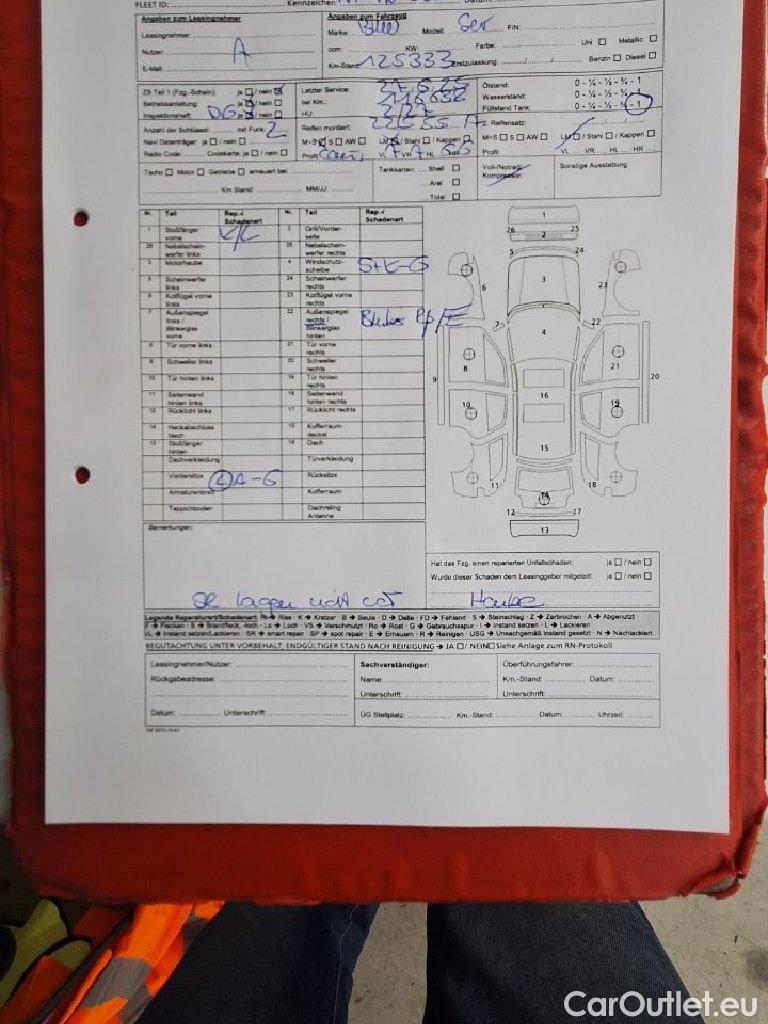 FLEET ID: Kennzeichen
Angaben zum Leasingnehmer
Leasingnehmer:
Nutzer: A
E-Mail:
Angaben zum Fahrzeug
Marke: Modell: FIN:
ccm: KW: Farbe: Uni Metallic
Km-Stand: 125333 Erstzulassung: Benzin Diesel
ZB Teil 1 (Fzg.-Schein): ja / nein
Betriebsanleitung: ja / nein
Inspektionsheft: DG ja / nein
Anzahl der Schlüssel: mit Funk: 2
Navi Datenträger: ja / nein
Radio Code: Codekarte: ja / nein
Letzter Service:
bei Km.:
HU:
Reifen montiert:
M+S S AW LM / Stahl / Kappen
Profil VL VR HL HR
Ölstand: 0 – ¼ – ½ – ¾ – 1
Wasserstand: 0 – ¼ – ½ – ¾ – 1
Füllstand Tank: 0 – ¼ – ½ – ¾ – 1
2. Reifensatz:
M+S S AW LM / Stahl / Kappen
Profil VL VR HL HR
Tacho Motor Getriebe erneuert bei:
Km. Stand: MM/JJ
Tankkarten: Shell
Aral
Total
Voll-/Notrad/
Kompressor:
Sonstige Ausstattung
Nr. Teil Rep.-/ Schadenart Nr. Teil Rep.-/ Schadenart
1 Stoßfänger vorne K/L 2 Grill/Vorder- seite
26 Nebelschein- werfer links 25 Nebelschein- werfer rechts
3 Motorhaube 4 Windschutz- scheibe St E-G
5 Scheinwerfer links 24 Scheinwerfer rechts
6 Kotflügel vorne links 23 Kotflügel vorne rechts
7 Außenspiegel links / Blinkerglas vorne 22 Außenspiegel rechts / Blinkerglas hinten
8 Tür vorne links 21 Tür vorne rechts
9 Schweller links 20 Schweller rechts
10 Tür hinten links 19 Tür hinten rechts
11 Seitenwand hinten links 18 Seitenwand hinten rechts
12 Rücklicht links 17 Rücklicht rechts
14 Heckabschluss blech 15 Kofferraum- deckel
13 Stoßfänger hinten 16 Dach
Dachverkleidung Türverkleidung
Vordersitze A-G Rücksitze
Armaturenbrett Kofferraum
Teppichboden Dachreling Antenne
1
26 2 25
5 24
6 3 23
7 4 22
8 21
9 16 20
10 19
15
11 14 18
12 17
13
Bemerkungen:
Hat das Fzg. einen reparierten Unfallschaden: ja / nein
Wurde dieser Schaden dem Leasinggeber mitgeteilt: ja / nein
lagen nicht vor
Legende Reparaturart/Schadenart: R → Riss · K → Kratzer · B → Beule · D → Delle · FD → Fehlend · S → Steinschlag · Z → Zerbrochen · A → Abgenutzt
F → Flecken · B → Brandfleck, -loch · Ls → Loch · VS → Verschmutzt · Ro → Rost · G → Gebrauchsspur · I → Instand setzen · L → Lackieren
I/L → Instand setzen/Lackieren · SR → smart repair · SP → spot repair · E → Erneuern · R → Reinigen · USG → Unsachgemäß instand gesetzt · N → Nachlackiert
BEGUTACHTUNG UNTER VORBEHALT, ENDGÜLTIGER STAND NACH REINIGUNG → JA / NEIN Siehe Anlage zum RN-Protokoll
Leasingnehmer/Nutzer:
Rückgabeadresse:
Datum: Unterschrift:
Sachverständiger:
Name:
Unterschrift:
Überführungsfahrer:
Km.-Stand: Datum:
Unterschrift:
ÜG Stellplatz: Km.-Stand: Datum: Uhrzeit:
CarOutlet.eu